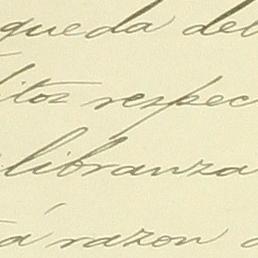 queda del
itos respec
libranza
tá razon